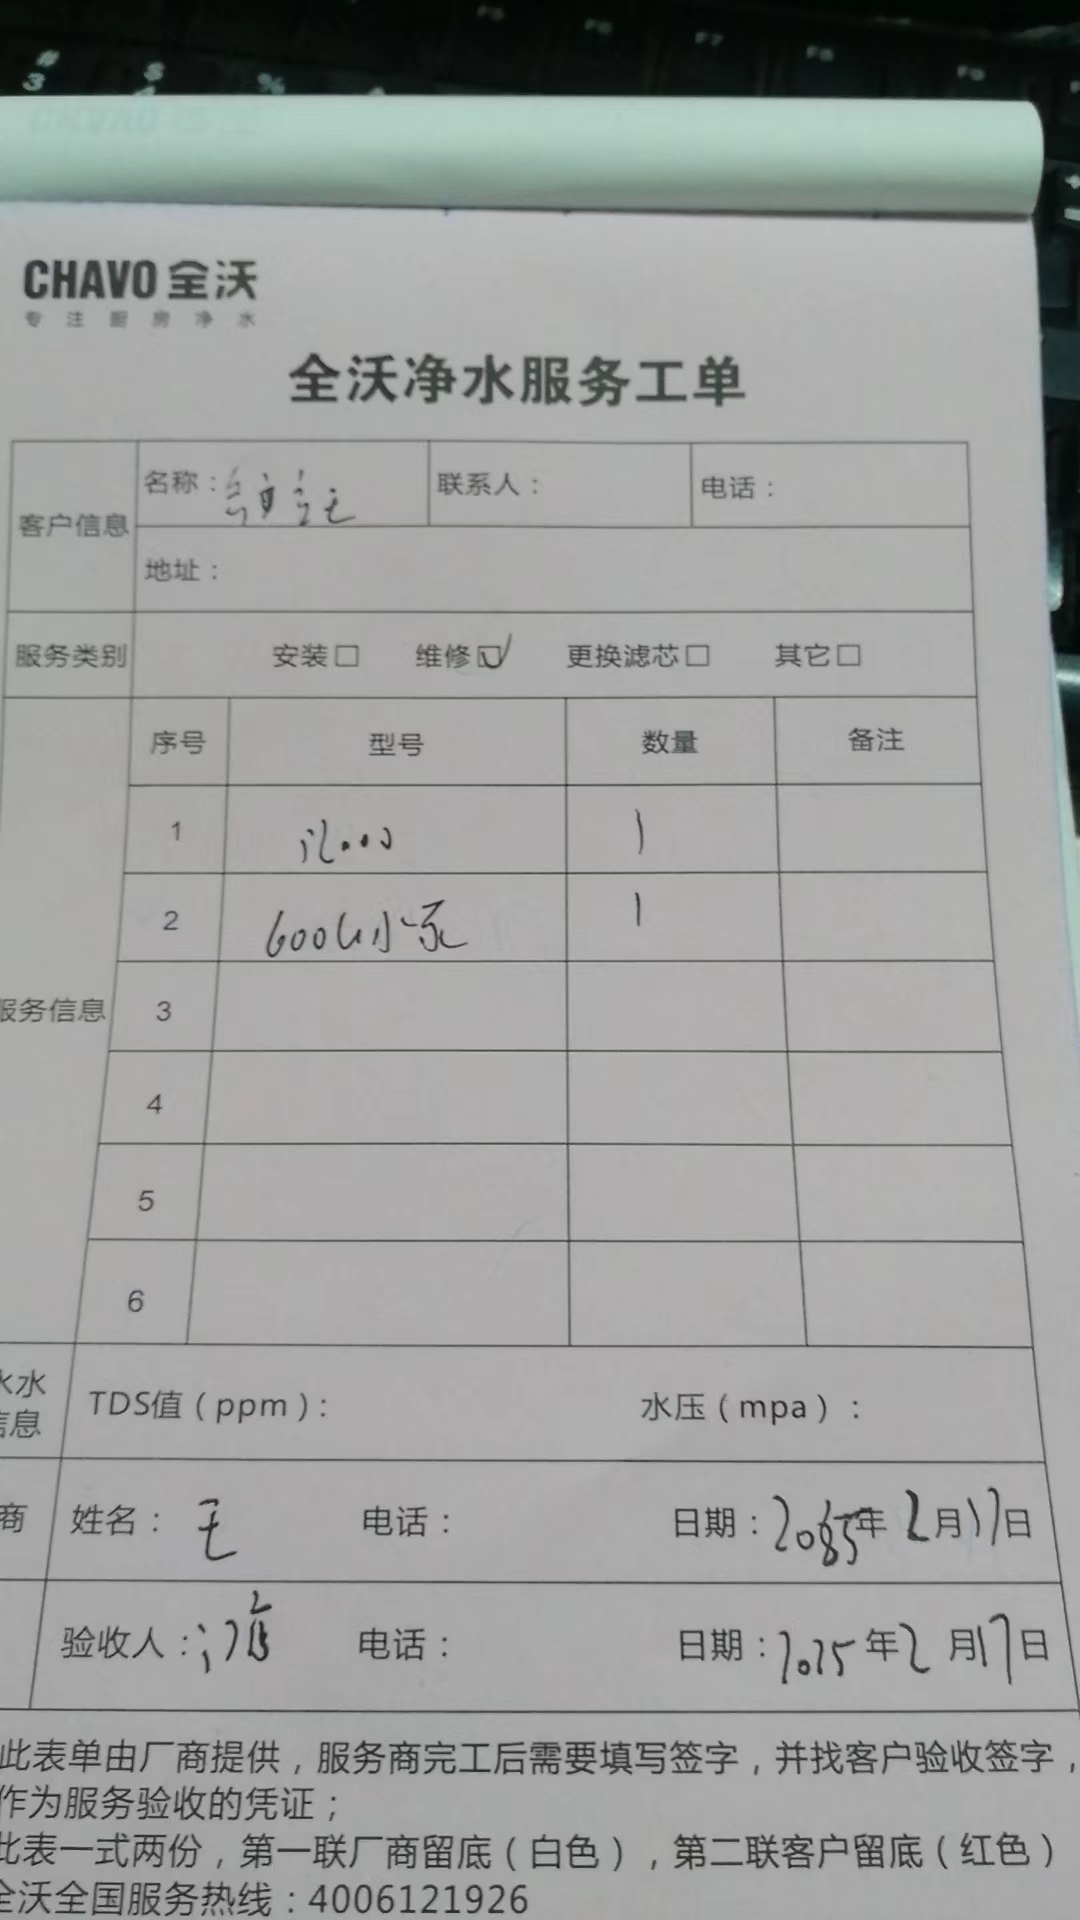 F5 F6 F7 F8 F9
# $ %
3 4
CHAVO 全沃
专注厨房净水
全沃净水服务工单
客户信息 名称： 联系人： 电话：
地址：
服务类别 安装□ 维修☑ 更换滤芯□ 其它□
序号 型号 数量 备注
1 1
2 600G水泵 1
服务信息 3
4
5
6
水水
信息
TDS值（ppm）： 水压（mpa）：
商 姓名：王 电话： 日期：2025年2月17日
验收人： 电话： 日期：2025年2月17日
此表单由厂商提供，服务商完工后需要填写签字，并找客户验收签字，
作为服务验收的凭证；
此表一式两份，第一联厂商留底（白色），第二联客户留底（红色）
全沃全国服务热线：4006121926